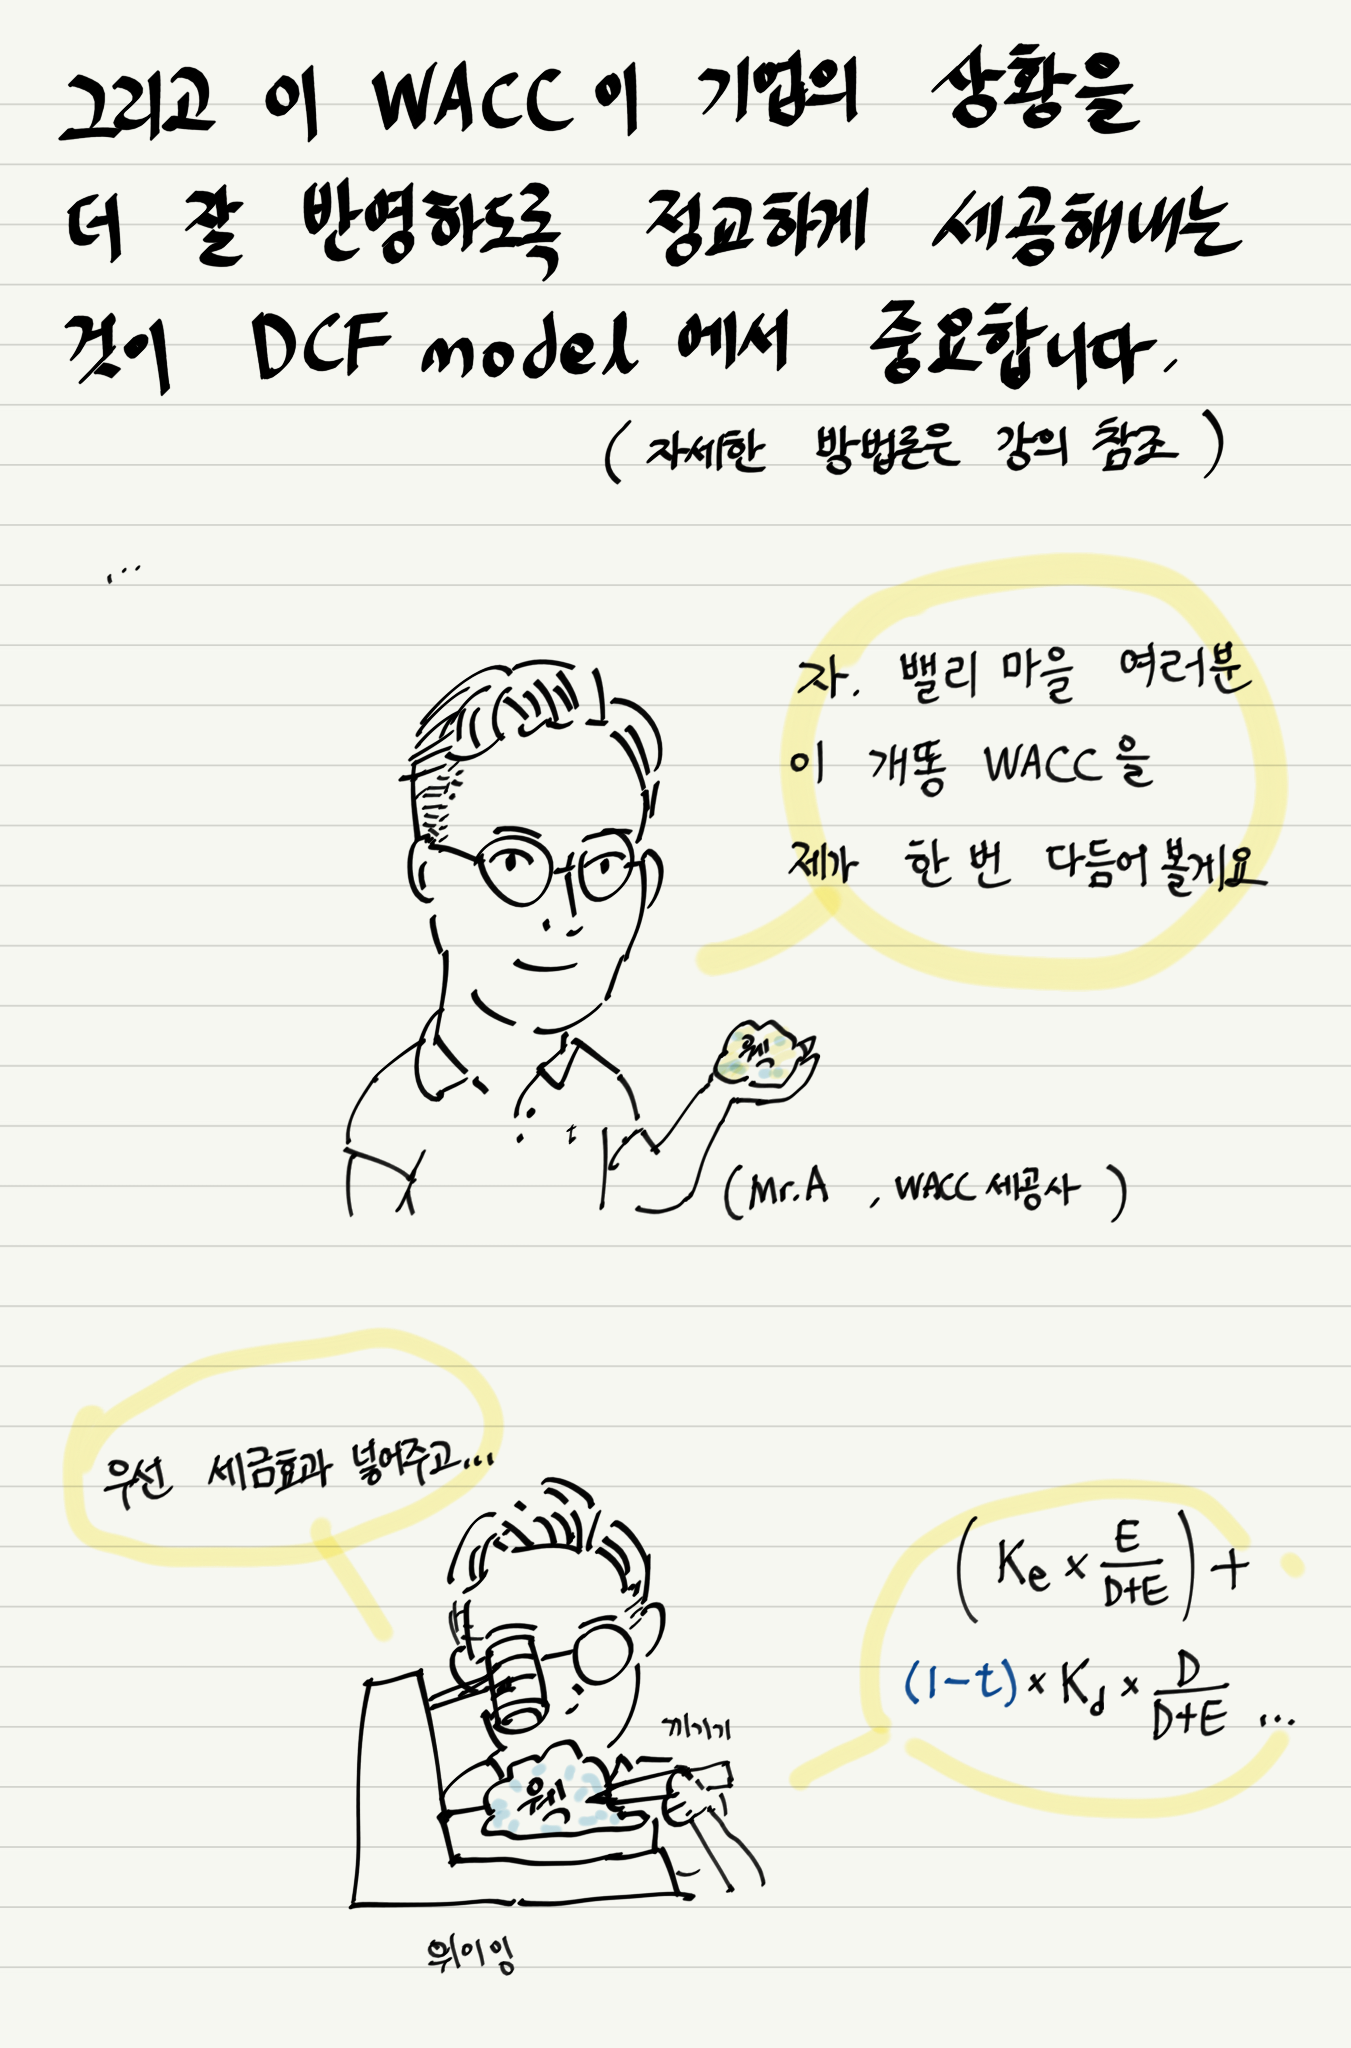 그리고 이 WACC이 기업의 상황을
더 잘 반영하도록 정교하게 세공해내는
것이 DCF model에서 중요합니다.
(자세한 방법론은 강의 참조)
...
자. 밸리 마을 여러분
이 개똥 WACC을
제가 한 번 다듬어 볼게요
웩
(Mr.A , WACC 세공사)
우선 세금효과 넣어주고...
(Ke × E/D+E) +
(1-t) × Kd × D/D+E ...
끼기긱
웩
위이잉